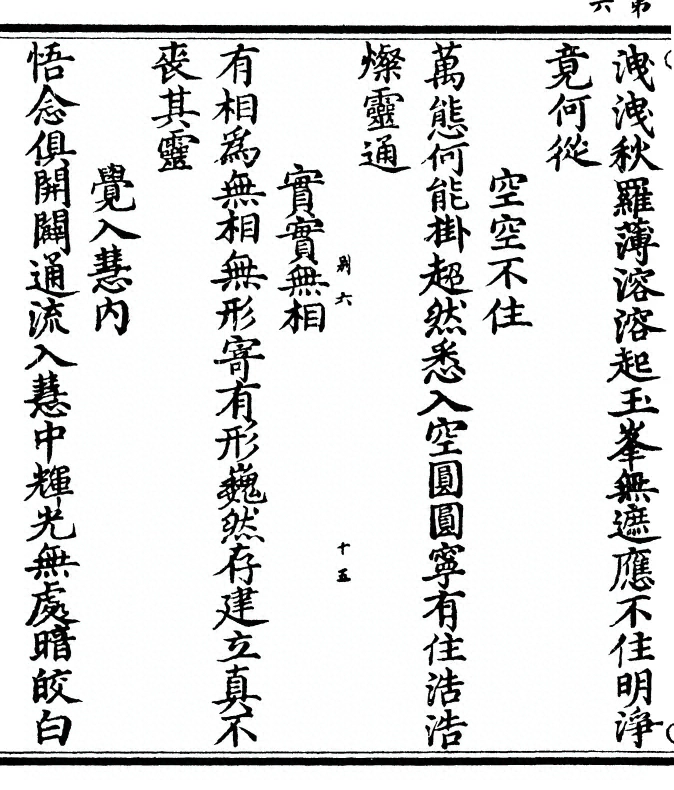 洩洩秋羅薄溶溶起玉峯無遮應不住明淨
竟何從
空空不住
萬態何能掛超然悉入空圓圓寧有住浩浩
燦靈通
别六
十五
實實無相
有相為無相無形寄有形巍然存建立真不
喪其靈
覺入慧内
悟念俱開闢通流入慧中輝光無處暗皎白